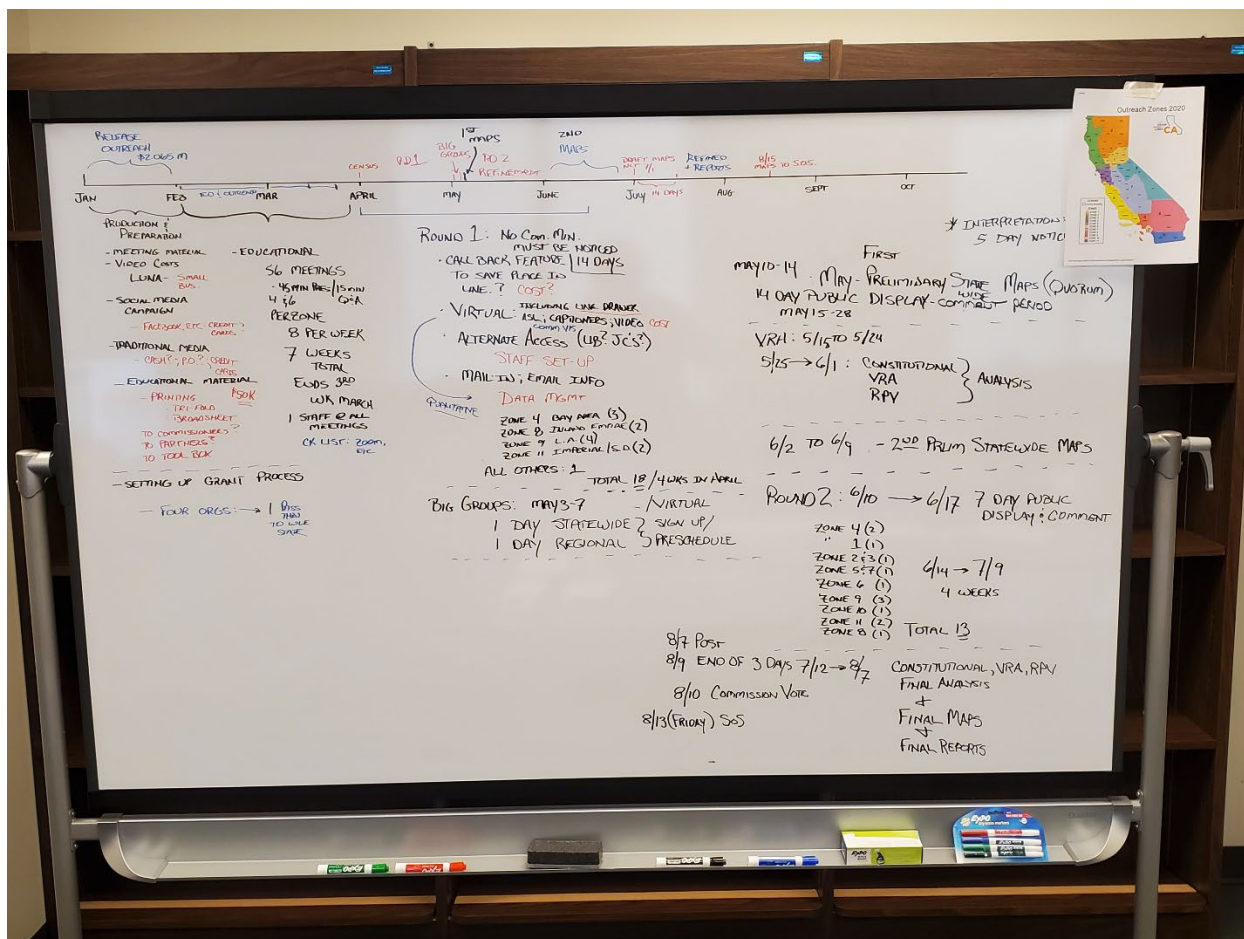 RELEASE
OUTREACH
$2.065 M
1ST
MAPS
2ND
MAPS
CENSUS
RD 1
BIG
GROUPS
RD 2
REFINEMENT
DRAFT MAPS
NLT 7/1
REFINED
+ REPORTS
8/15
MAPS TO S.O.S.
JAN
FEB
ED & OUTREACH
MAR
APRIL
MAY
JUNE
JULY
14 DAYS
AUG
SEPT
OCT
Outreach Zones 2020
CA
PRODUCTION &
PREPARATION
- MEETING MATERIAL
- VIDEO COSTS
LUNA - SMALL
BUS.
- SOCIAL MEDIA
CAMPAIGN
- FACEBOOK, ETC CREDIT
CARDS
- TRADITIONAL MEDIA
- CASH?; P.O.? CREDIT
CARDS
- EDUCATIONAL MATERIAL
- PRINTING $50K
- TRI-FOLD
BROADSHEET
TO COMMISSIONERS?
TO PARTNERS?
TO TOOL BOX
- SETTING UP GRANT PROCESS
- FOUR ORGS: → 1
THEN
TO
STATE
- EDUCATIONAL
56 MEETINGS
- 45 MIN PRES/15 MIN
Q & A
4 & 6
PER ZONE
8 PER WEEK
7 WEEKS
TOTAL
ENDS 3RD
WK MARCH
1 STAFF @ ALL
MEETINGS
CK LIST: ZOOM,
ETC
ROUND 1: NO COM. MIN.
MUST BE NOTICED
14 DAYS
· CALL BACK FEATURE
TO SAVE PLACE IN
LINE? COST?
· VIRTUAL: INCLUDING LINE DRAWER
ASL; CAPTIONERS; VIDEO COST
COMM VIS
· ALTERNATE ACCESS (LIB? JC'S?)
STAFF SET-UP
· MAIL IN; EMAIL INFO
QUALITATIVE
DATA MGMT
ZONE 4 BAY AREA (3)
ZONE 8 INLAND EMPIRE (2)
ZONE 9 L.A. (4)
ZONE 11 IMPERIAL/S.D (2)
ALL OTHERS: 1
TOTAL 18 / 4 WKS IN APRIL
BIG GROUPS: MAY 3-7 - /VIRTUAL
1 DAY STATEWIDE } SIGN UP/
1 DAY REGIONAL } PRESCHEDULE
* INTERPRETATION:
5 DAY NOTIC
FIRST
MAY 10-14 · MAY - PRELIMINARY STATE WIDE MAPS (QUORUM)
14 DAY PUBLIC DISPLAY - COMMENT PERIOD
MAY 15-28
VRA: 5/15 TO 5/24
5/25 → 6/1: CONSTITUTIONAL
VRA
RPV
} ANALYSIS
6/2 TO 6/9 - 2ND PRLIM STATEWIDE MAPS
ROUND 2: 6/10 → 6/17 7 DAY PUBLIC
DISPLAY & COMMENT
ZONE 4 (2)
" 1 (1)
ZONE 2 & 3 (1)
ZONE 5 & 7 (1)
ZONE 6 (1)
ZONE 9 (3)
ZONE 10 (1)
ZONE 11 (2)
ZONE 8 (1)
6/14 → 7/9
4 WEEKS
TOTAL 13
8/7 POST
8/9 END OF 3 DAYS
8/10 COMMISSION VOTE
8/13 (FRIDAY) SOS
7/12 → 8/7 CONSTITUTIONAL, VRA, RPV
FINAL ANALYSIS
+
FINAL MAPS
+
FINAL REPORTS
EXPO
EXPO
EXPO
EXPO
EXPO